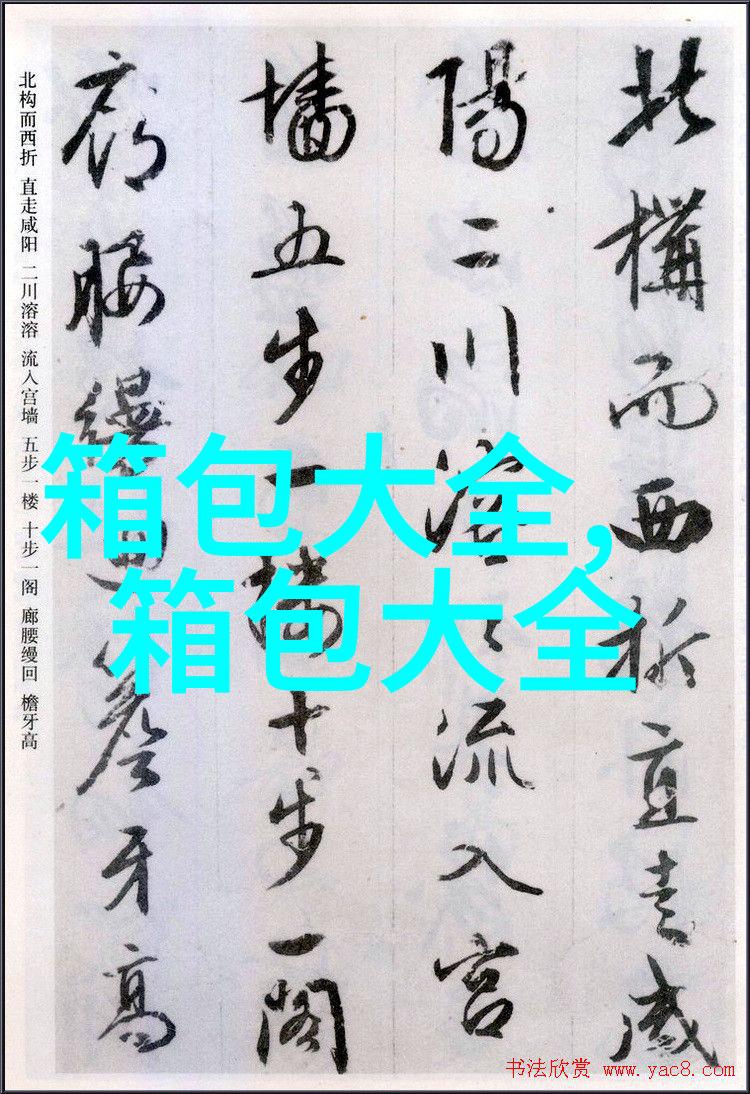 北構而西折直走咸
陽二川溶々流入宮
墻五步一樓十步一閣
廊腰縵迴簷牙高
北构而西折 直走咸阳 二川溶溶 流入宫墙 五步一楼 十步一阁 廊腰缦回 檐牙高
箱包大全,
箱包大全
书法欣赏 www.yac8.com